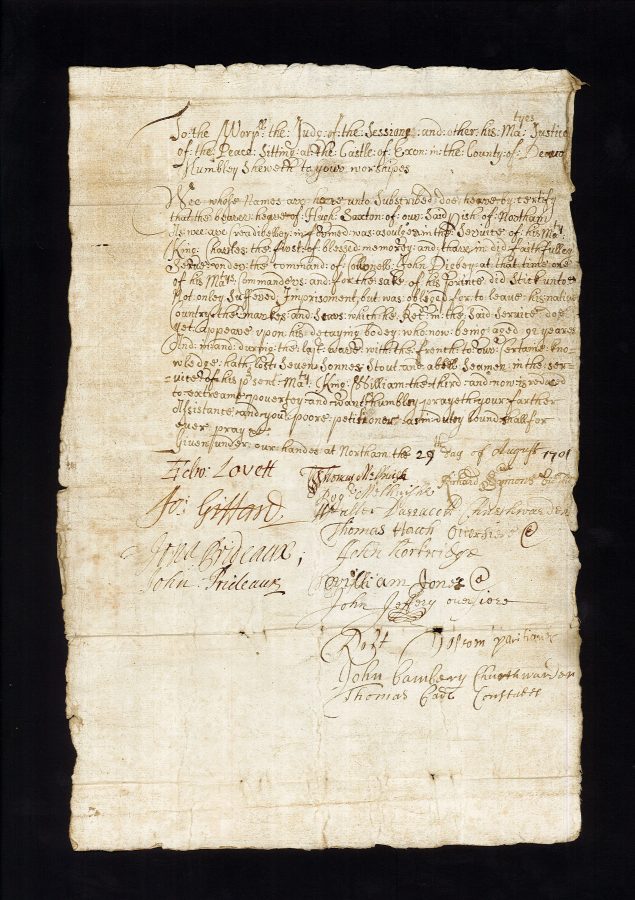 To the Worpll the: Judg: of: the: Sessions: and: other: his: Matyes Justice
of the: Peace: Sitting: at: the: Castle: of: Exon: in: the: County: of: Devon
Humbley Sheweth to your worshipes
Wee whose Names are here unto Subscribed: doe: heare: by: certify
that the: bearer: heare: of: Hugh: Saxton: of: our: Said: Pish: of: Northam
As: we: are: Creadibelley: informed: was: a soulger: in the Service of: his: Maty
King: Charles: the: first: of: blessed: memorey: and: thare: in: did: faithfulley
Serve: under: the: command: of: Collonell: John: Digbey: at: that: time: one
of his: Matys: Commanders: and: for the: sake: of: his: Prince: did: Stick unto:
Not onley: Suffered: Imprisoment: but: was: obleged: for: to: leave: his: native
Country: the: markes: and: Scars: which: he: Ret: in: the: Said: Service: doe:
yet: Appeare: upon: his: decaying: bodey: who: now: being: aged: 92 yeares
And: in: and: during: the: last: warr: with: the: french: to: our: Sertane: kno
wledge: hath: lost: Seven: Sonnes: Stout: and: abell: Seamen: in: the: ser
vice: of: his: psent: Maty: King: William: the: third: and: now: is: reduced
to: extreame: poverty: and: want: humbley: prayeth: your: farther
Assistance: and: your: poore: petitioner: as: in: duty: bound: shall: for
ever pray &c
Given: under: our: handes at Northam the 29th day of August 1701
Edw: Lovett
Jo: Giffard
Jona Prideaux;
John Prideaux
Thomas
Richard
Walter Darracott
Thomas Hatch Oversiere
John
William Jones
John Jeffery oversiore
Robt
John Bambery Churchwarden
Thomas Constabel